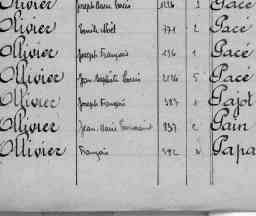 Ollivier Joseph Marie Louis 1126 3 Pacé
Ollivier Emile Noël 771 2 Pacé
Ollivier Joseph François 136 1 Pacé
Ollivier Jean Baptiste Louis 2126 5 Pacé
Ollivier Joseph François 383 Pajot
Ollivier Jean Marie 837 2 Pain
Ollivier François 592 Papa